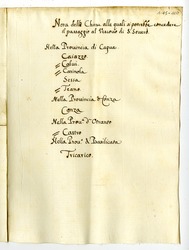 Nota delle Chiese alle quali si potrebbe concedere
il passaggio al Vescovo di S. Severo
Nella Provincia di Capua
Caiazzo
Calvi
Carinola
Sessa
Teano
Nella Provincia di Conza
Conza
Nella Prou.ª d'Otranto
Castro
Nella Prou.ª di Basilicata
Tricarico